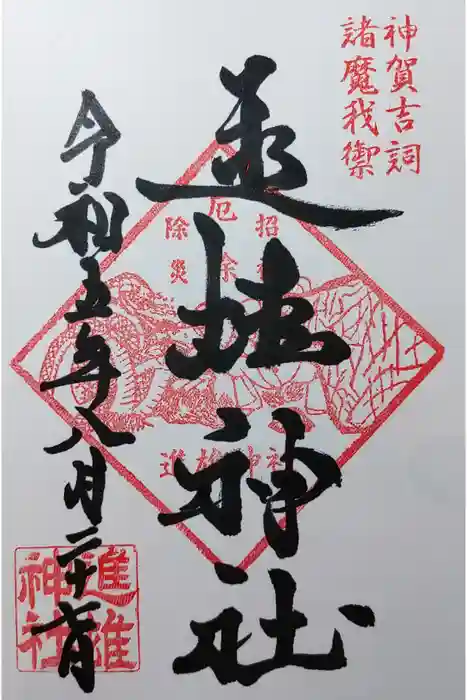 神賀吉詞
諸魔我禦
進雄神社
招福
厄除
除災
進雄神社
令和五年八月二十
進雄
神社